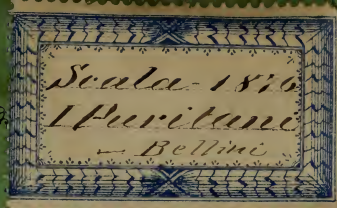 Scala - 1876
I Puritani
- Bellini